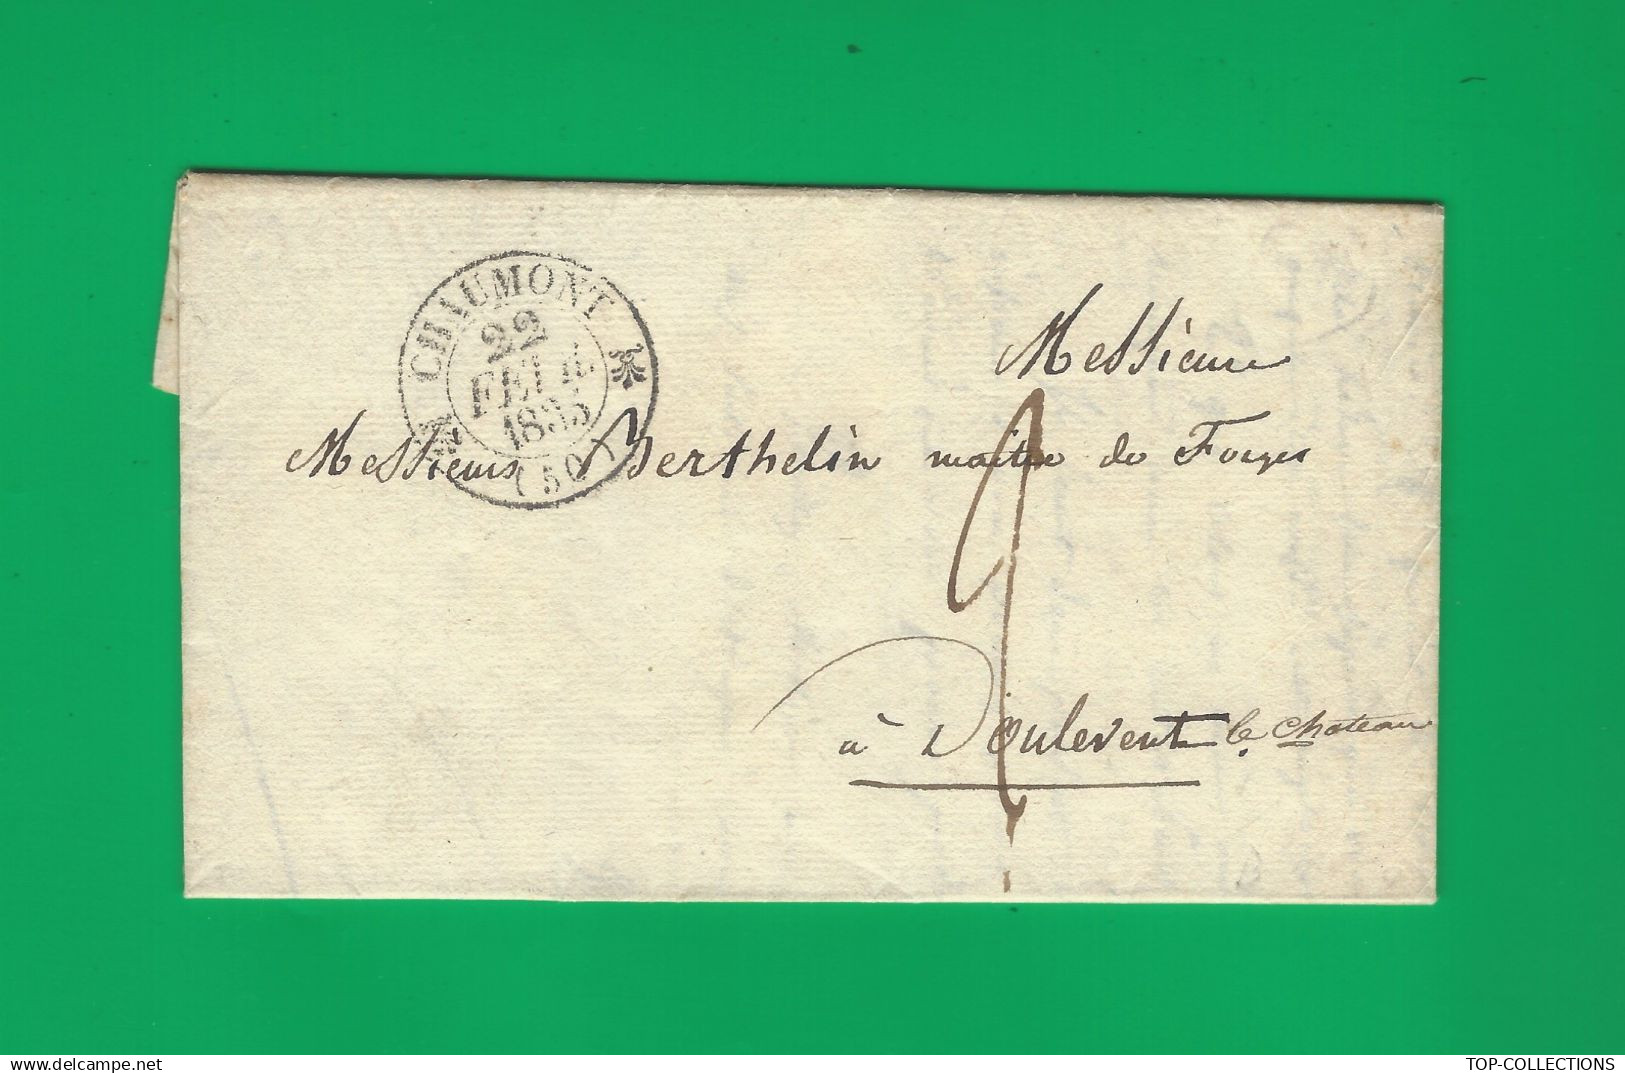 CHAUMONT
22
FEVR.
1835
(50)
Messieurs
Messieurs Berthelin maitre de Forges
2
à Doulevent le chateau
www.delcampe.net
TOP-COLLECTIONS